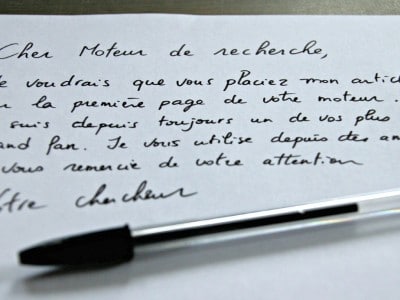 Cher Moteur de recherche,
voudrais que vous placiez mon artic
la première page de votre moteur.
suis depuis toujours un de vos plus
and fan. Je vous utilise depuis des an
vous remercie de votre attention
otre chercheur